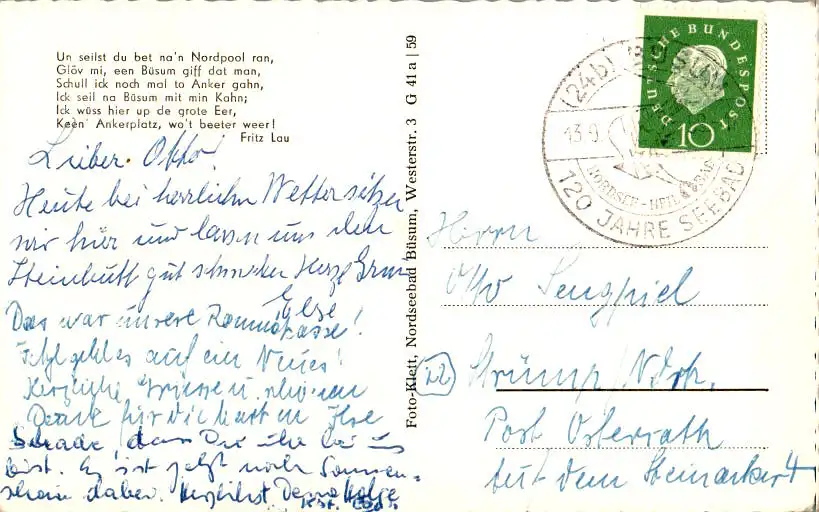 Un seilst du bet na'n Nordpool ran,
Glöv mi, een Büsum giff dat man,
Schull ick noch mal to Anker gahn,
Ick seil na Büsum mit min Kahn;
Ick wüss hier up de grote Eer,
Keen Ankerplatz, wo't beeter weer!
Fritz Lau
Lieber Otto!
Heute bei herrlichem Wetter sitzen
wir hier und lassen uns den
Steinbutt gut schmecken Herzl. Gruß
Else
Das war unsere
Jetzt geht es auf ein Neues!
Herzliche Grüsse u. schönen
Dank für die Karten Ilse
Schade, dass Du nicht bei uns
bist. Es ist jetzt noch Sonnen-
schein dabei. Herzlichst
Foto-Klett, Nordseebad Büsum, Westerstr. 3 G 41 a | 59
DEUTSCHE BUNDESPOST
10
(24b) BÜSUM
13.9.
NORDSEE-HEILBAD
120 JAHRE SEEBAD
Herrn
Otto Sengpiel
(22) Strümp/Ndrh.
Post Osterath
Auf dem Steinacker 4